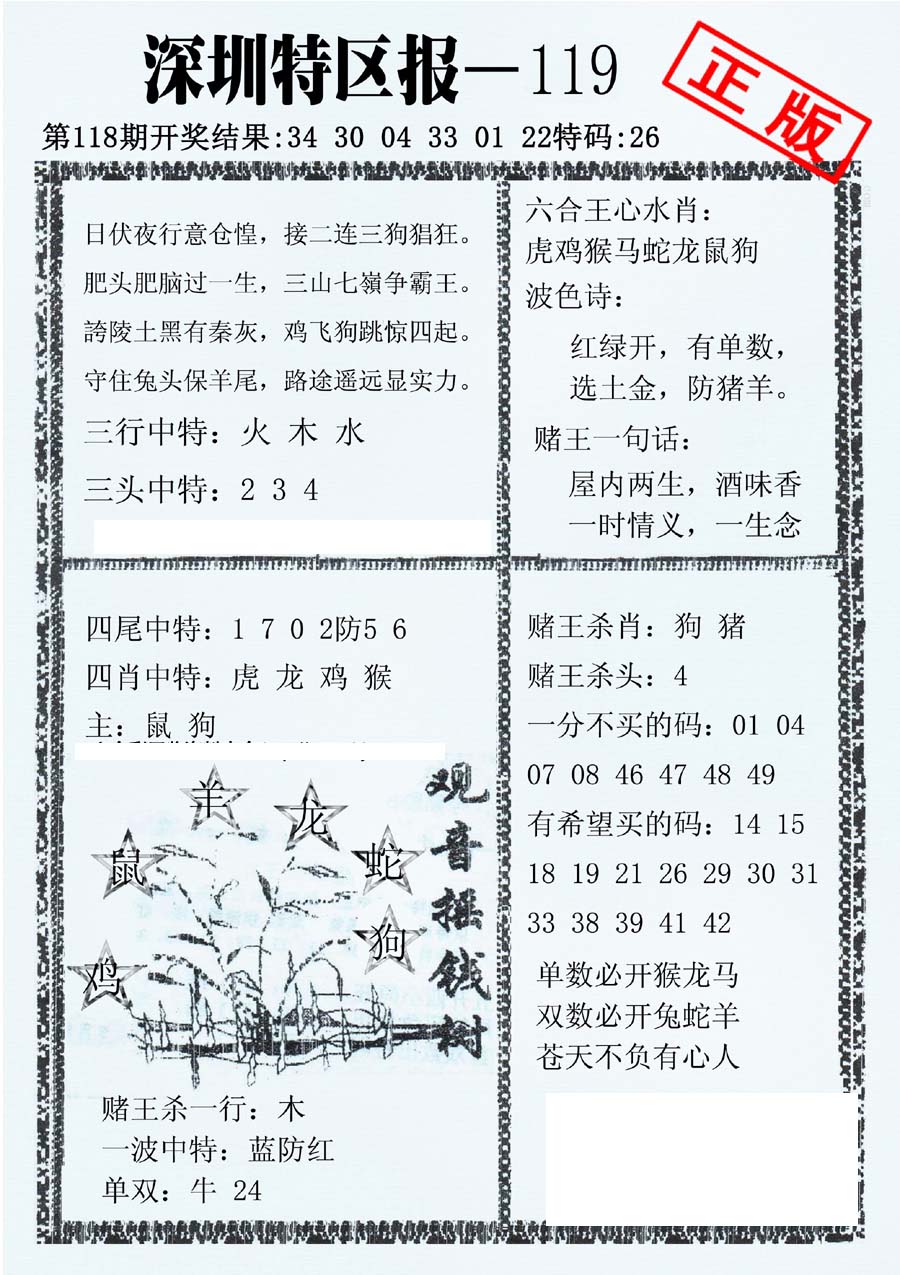 深圳特区报—119
正版
第118期开奖结果:34 30 04 33 01 22特码:26
日伏夜行意仓惶，接二连三狗猖狂。
肥头肥脑过一生，三山七嶺争霸王。
誇陵土黑有秦灰，鸡飞狗跳惊四起。
守住兔头保羊尾，路途遥远显实力。
三行中特：火 木 水
三头中特：2 3 4
六合王心水肖：
虎鸡猴马蛇龙鼠狗
波色诗：
红绿开，有单数，
选土金，防猪羊。
赌王一句话：
屋内两生，酒味香
一时情义，一生念
四尾中特：1 7 0 2防5 6
四肖中特：虎 龙 鸡 猴
主：鼠 狗
羊
龙
鼠
蛇
狗
鸡
观音摇钱树
赌王杀一行：木
一波中特：蓝防红
单双：牛 24
赌王杀肖：狗 猪
赌王杀头：4
一分不买的码：01 04
07 08 46 47 48 49
有希望买的码：14 15
18 19 21 26 29 30 31
33 38 39 41 42
单数必开猴龙马
双数必开兔蛇羊
苍天不负有心人